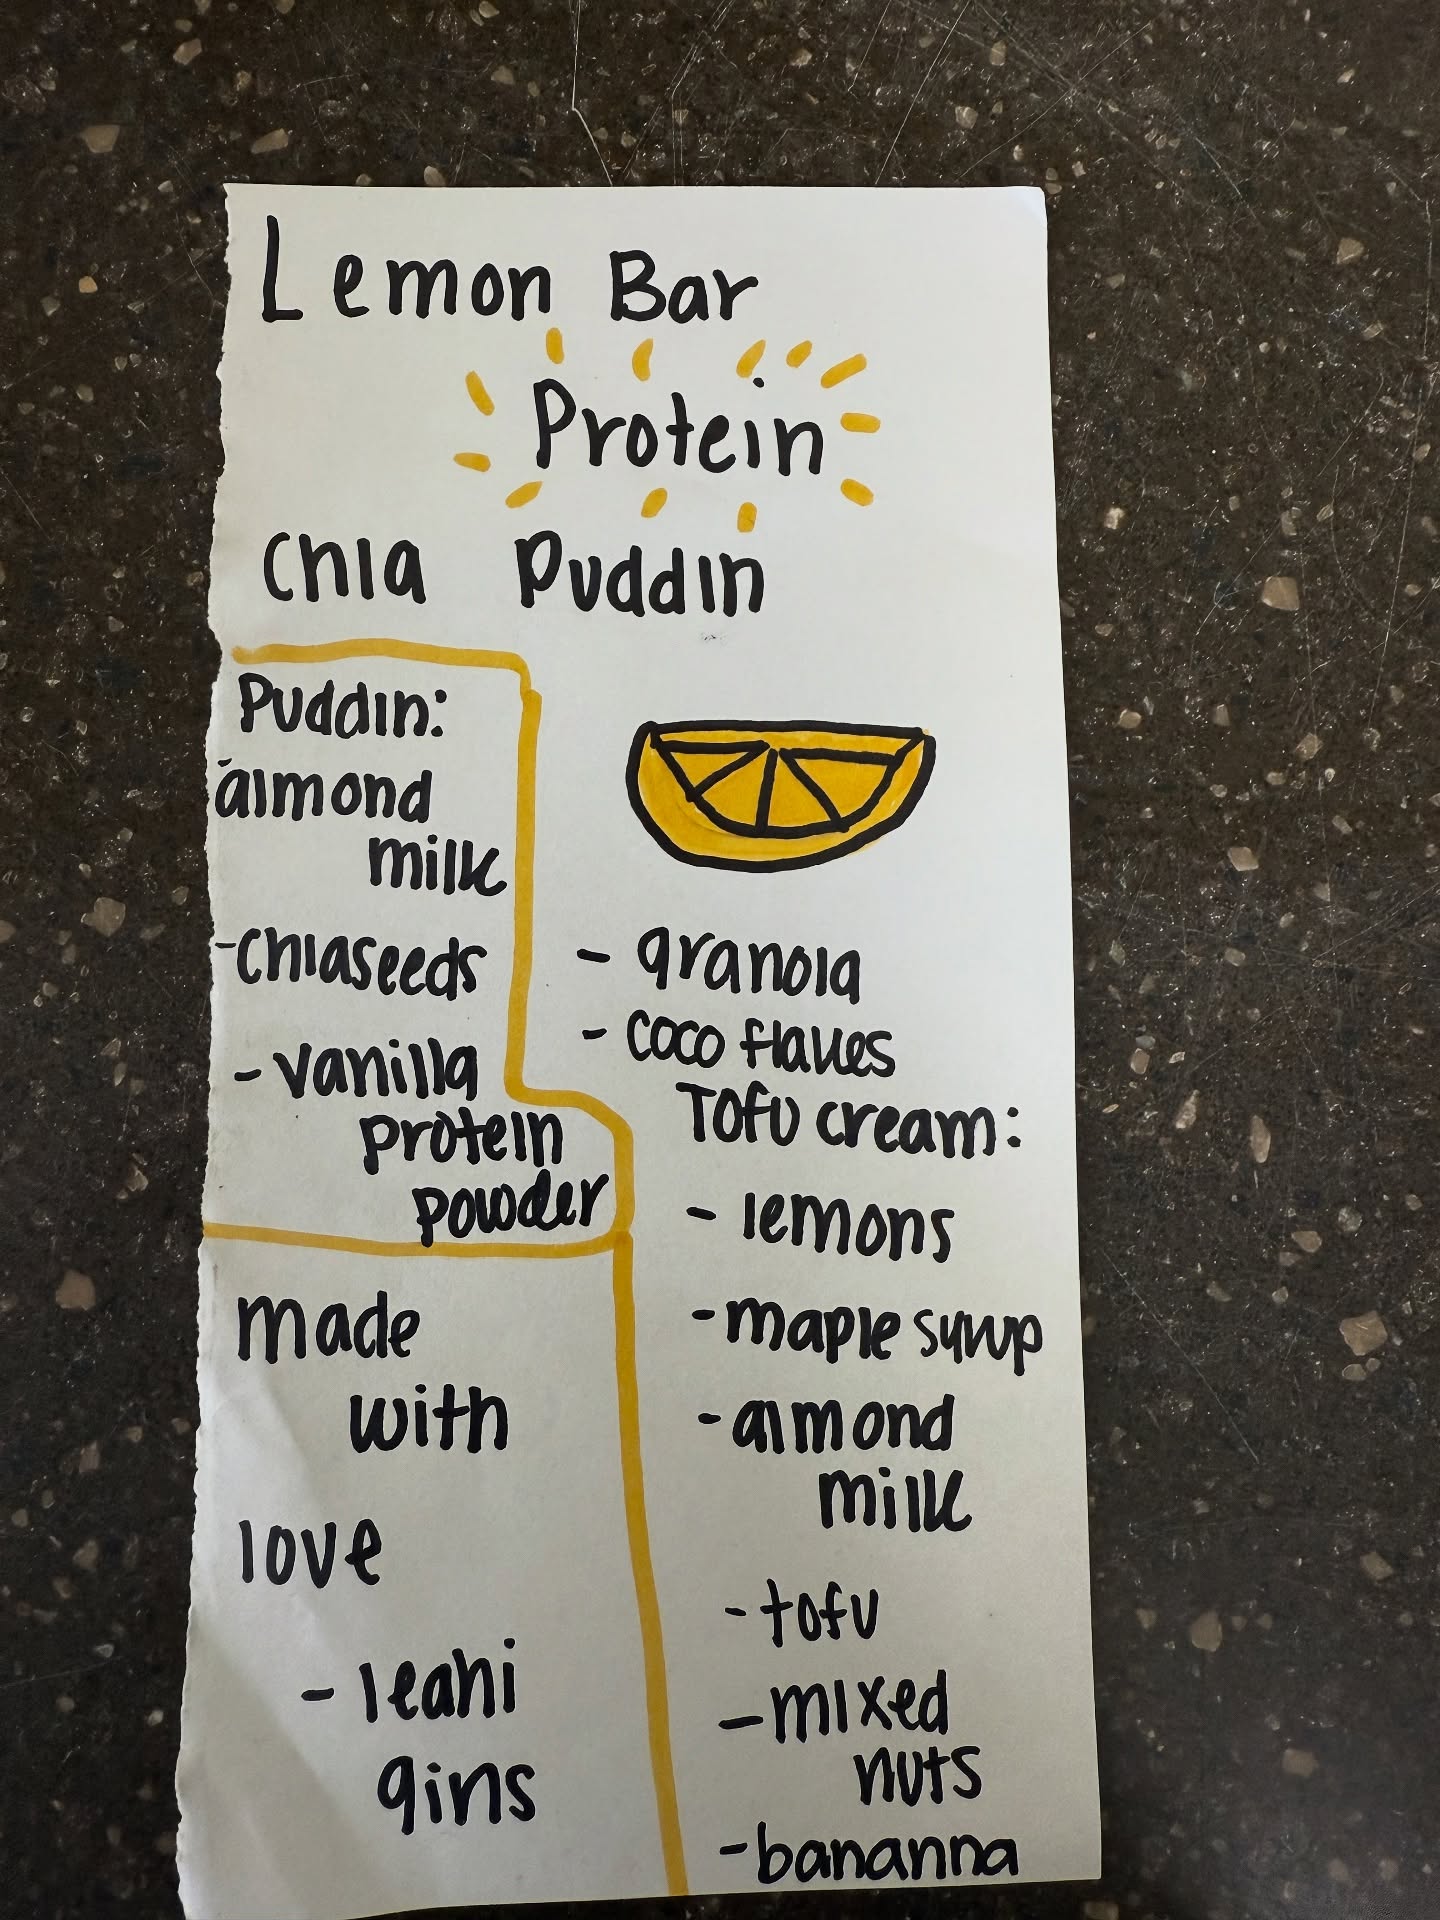 Lemon Bar
Protein
Chia Puddin
Puddin:
-almond
milk
-chiaseeds
-vanilla
protein
powder
made
with
love
-leahi
gins
- granola
- coco flakes
Tofu cream:
- lemons
-maple syrup
-almond
milk
-tofu
-mixed
nuts
-bananna